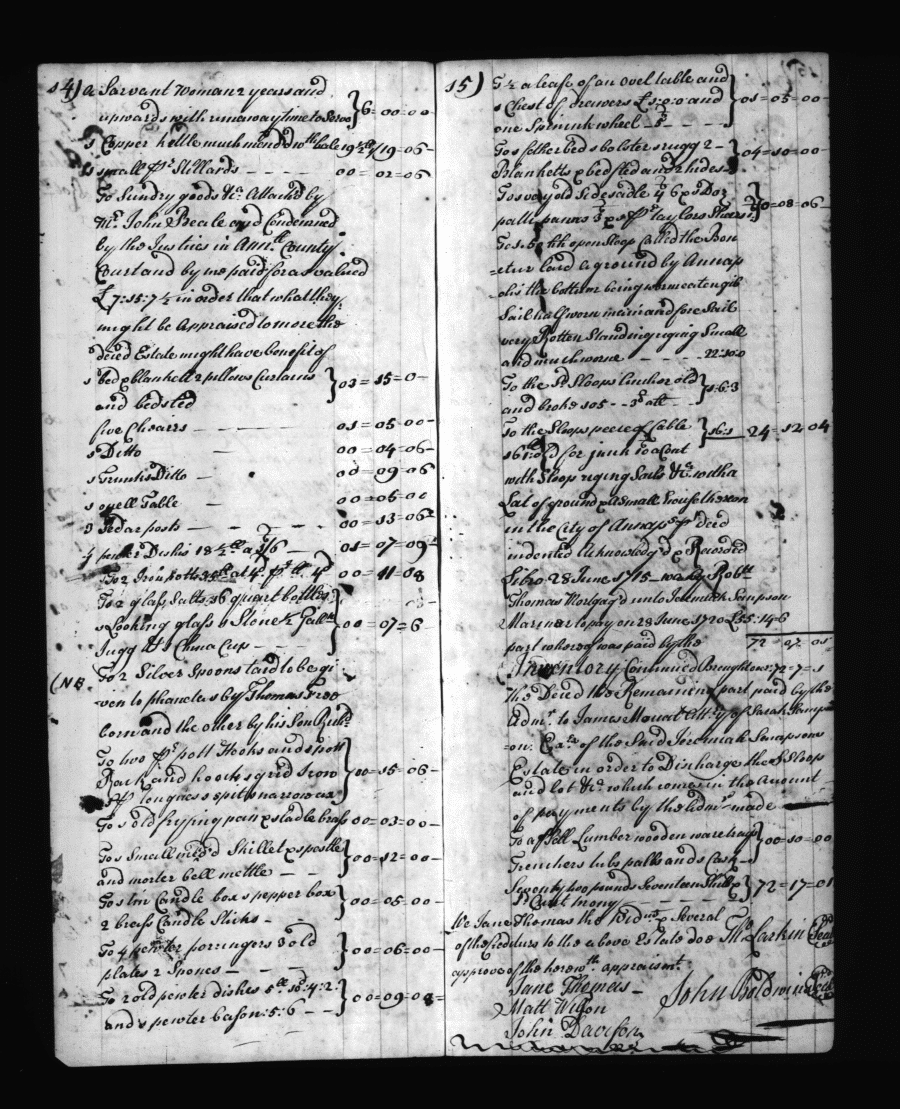 14) A Sarvant Woman 2 years and
upwards with runaway time to Serve } 6=00=00
1 Copper kettle much mend'd wth bale 19 1/2 1/19=06
1 small pr Stillards - - - 00=02=06
To Sundry goods &ca Attach'd by
Mr John Beale and Condemned
by the Justices in Ann:ll County
Court and by me paid for as valued
£7:15:7 1/2 in order that what they
might be Appraised to more the
deced Estate might have benefit of
1 bed & blanket 2 pillows Curtains
and bedsted } 03=15=0-
five Chearrs - - - 01=05=00-
1 Ditto - 00=04=06-
1 Trunk Ditto - 00=09=06
1 ovell Table - 00=06=00
3 sedar posts - - - 00=13=06
4 pewter Dishes 18 1/2 ll a 1/6 - 01=07=09
To 2 Iron potts at 4d pr ll 00=11=08
To 2 glass Salts 36 quart bottles
1 Looking glass 1 Stone 2 Galln
Jugg & 1 China Cup - - } 00=07=6
(NB To 2 Silver Spoons said to be gi-
ven to phanelers by Thomas Free
born and the other by his Son Richd
To two pr pott Hooks and 1 pott
Rack and hooks 1 grid Iron
pr Tongues 1 spit 1 narrow ax } 00=15=06-
To 1 old frying pan & 1 ladle brass 00=03=00-
To 1 Small mend'd Skillet & 1 pestle
and morter bell mettle - - } 00=12=00-
To 1 tin Candle box 1 pepper box
2 brass Candle Sticks - - } 00=05=00-
To 4 pewter porringers 3 old
plates 2 Spones - - - } 00=06=00-
To 2 old pewter dishes 5ll
and 1 pewter bason: 5:6 - - } 00=09=08=
15) To 1/2 a lease of an ovel table and
1 Chest of drawers £1:0:0 and
one Spinink wheel 5s - - - } 01=05=00-
To 1 fether bed 1 bolster 1 rugg 2-
Blanketts & bed sted and 2 hides } 04=10=00-
To 1 very old Side sadle 4/6
patti panns 3 pr taylors Sheers } 0=08=06-
To 1 Sloop Called the Bon
=etur laid a ground by Annap
olis the bottom being worm eaten gib
Sail half worn main and fore Sail
very Rotten Standing riging Small
and much worne - - - 22:10:0
To the Sd Sloops Anchor old
and broke 105 - - 3d a ll - - } 1:6:3
To the Sloops peece of Cable
old for junk to a Cont } 16:1 24=12=04
with Sloop riging Sails &ca with a
Lot of ground & a Small house thereon
in the City of Annaps pr deed
indented Acknowledg'd & Recorded
Libro 28 June 1715 - was by Robtt
Thomas Mortgag'd unto Jeremiah Sampson
Marriner to pay on 28 June 1720 £55:14:6
part whereof was paid by the 72 27 05
(Inventory Continued Brought over 72=7=1
the Deced the Remaining part paid by the
Admrx to James Mouat Atty of Sarah Samps
=on: Exx of the Said Jeremiah Sampsons
Estate in order to Discharge the Sd Sloop
and lot &ca which comes in the Account
of payments by the Admrx made -
To a ssell Lumber wooden ware trays
Trenchers tubs palls and 1 Cask - } 00=10=00
Seventy two pounds Seventeen Shill &
1d Currt mony - - - - } 72=17=01
We Jane Thomas the Widw & Several
of the Creditors to the above Estate doe Tho Larkin (Seal
approve of the herewth appraismt
Jane Thomas - John Boldwin (Seal
Matt Wilson
John Davison